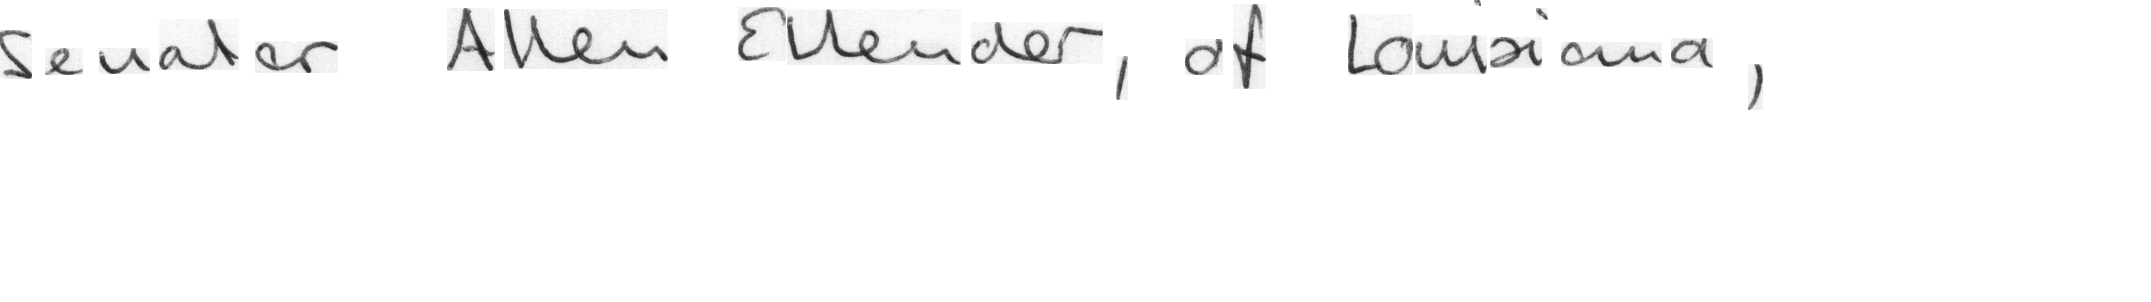 Senator Allen Ellender, of Louisiana,